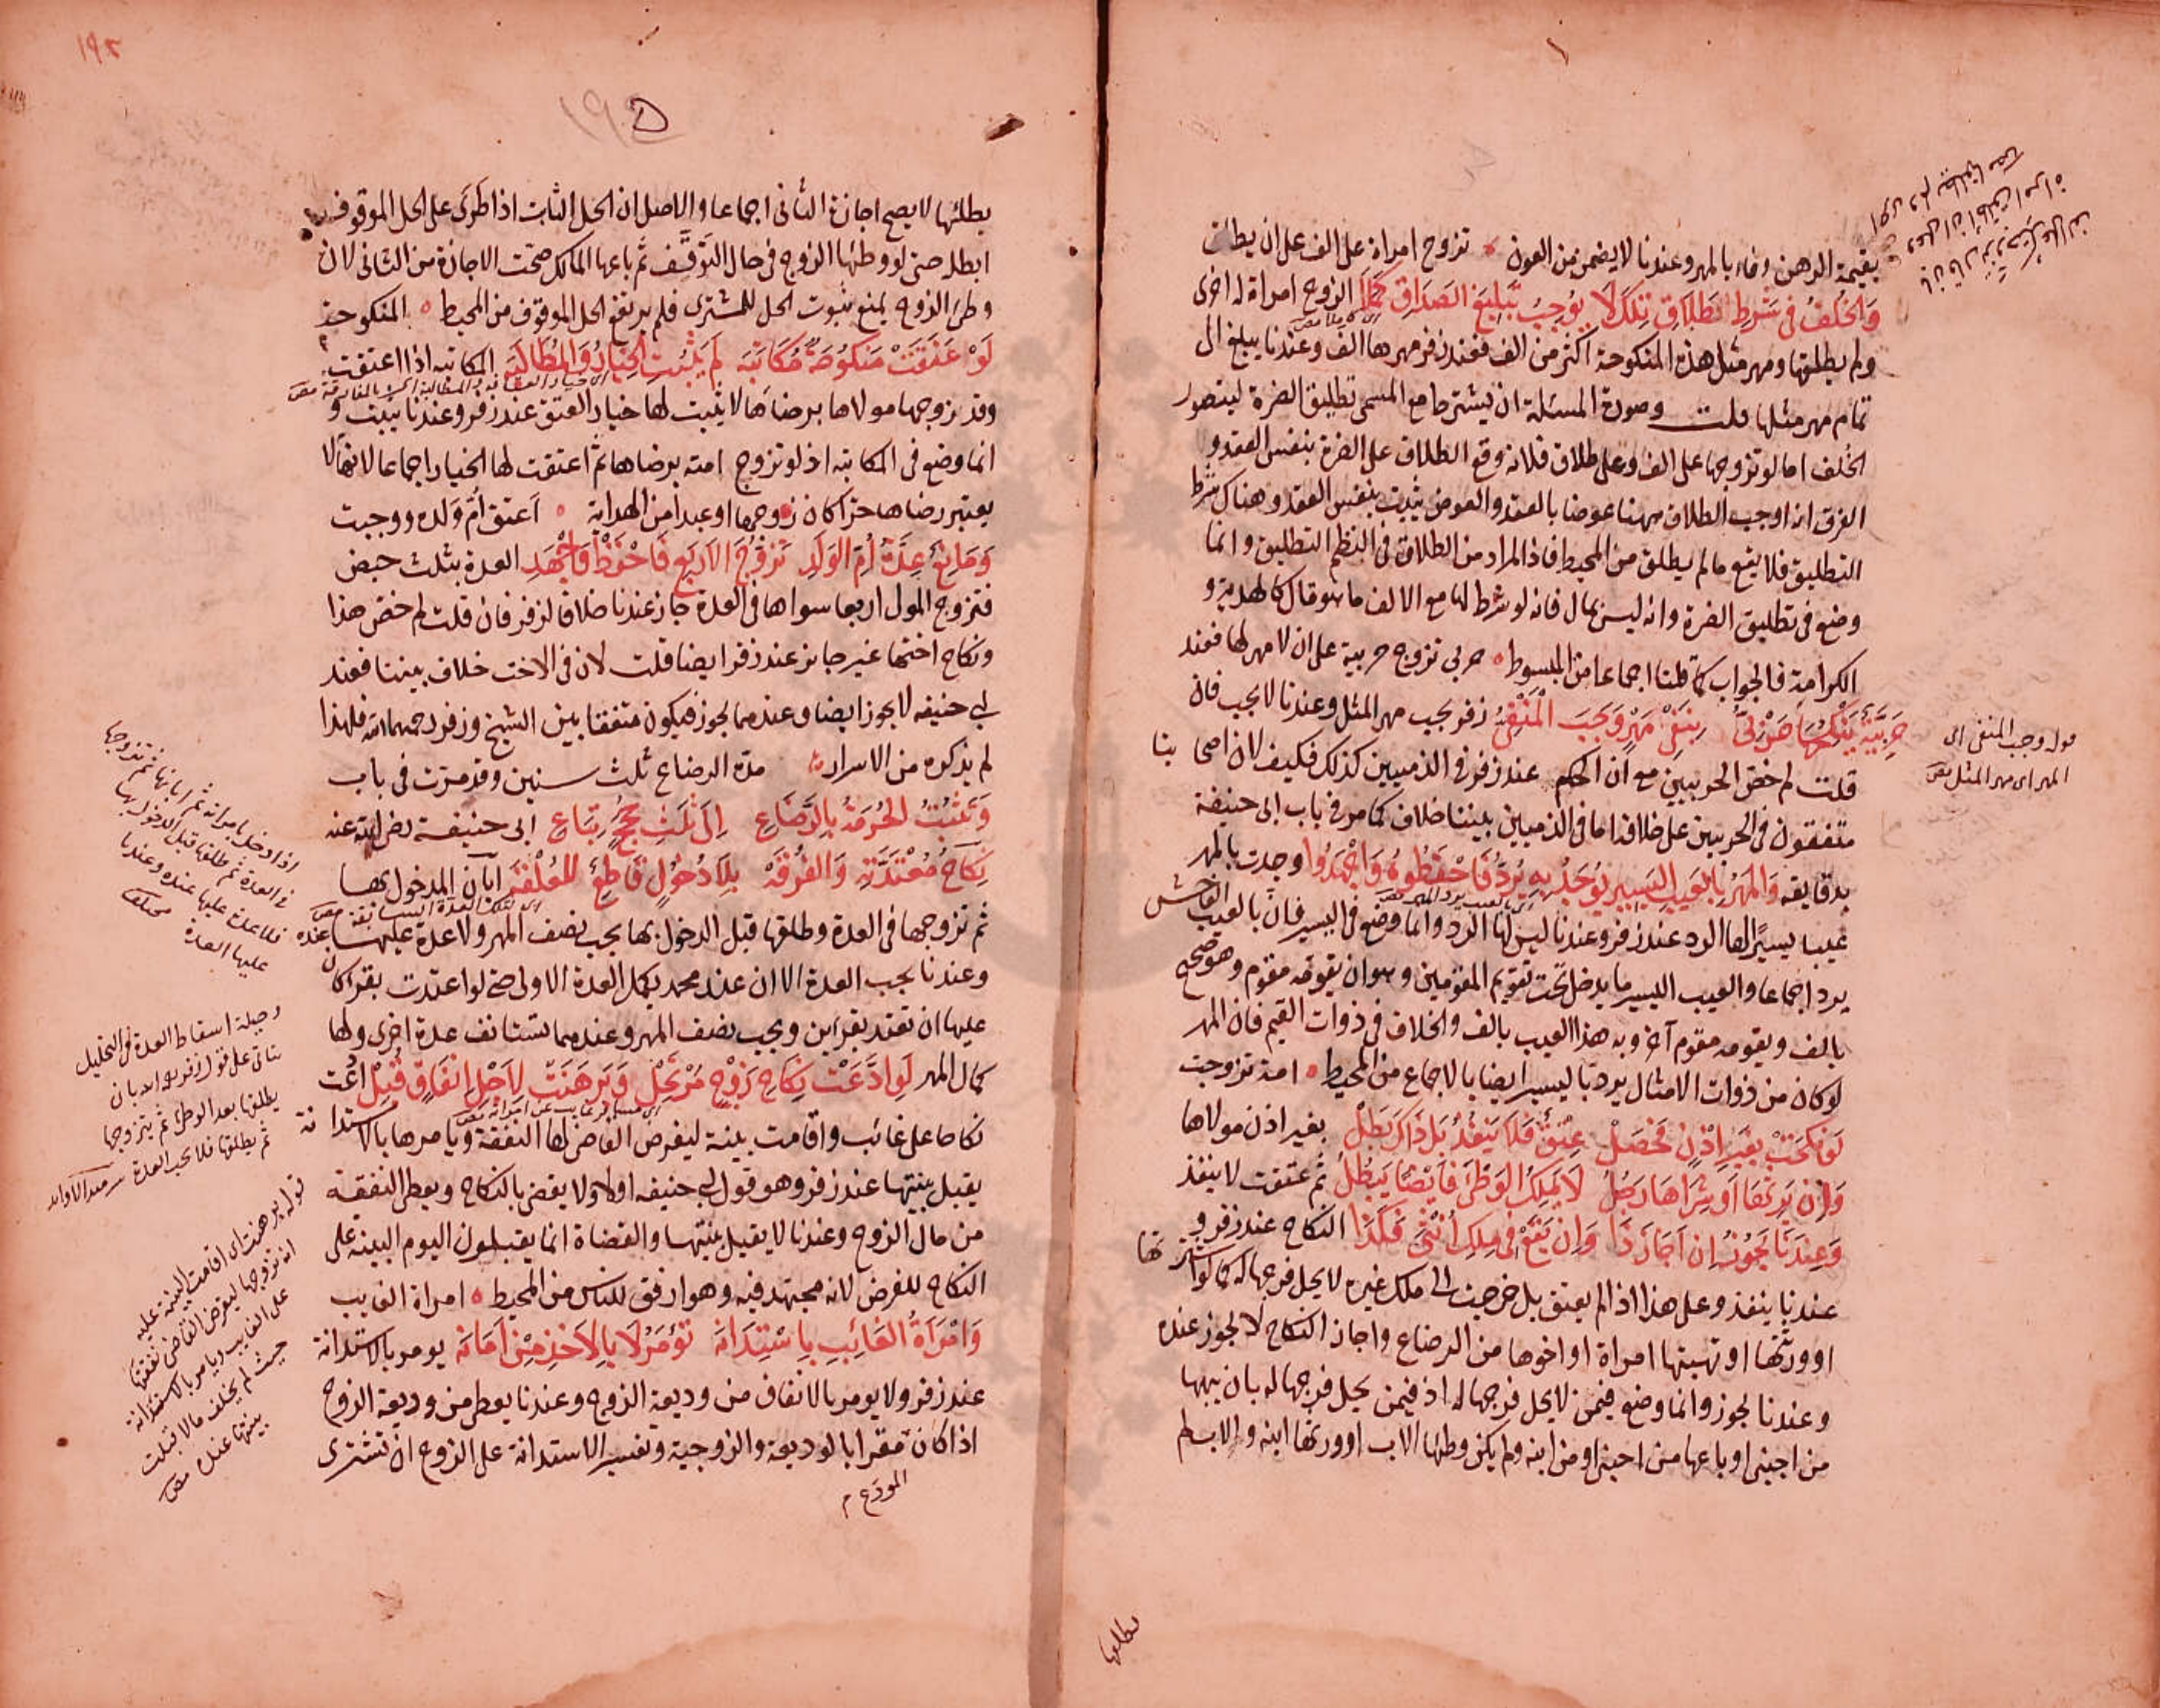 بقيمة الرهن وفاء بالمهر وعندنا لا يضمن من العون تزوج امراة على الف على ان يطلق
وَالخُلفُ فى شَرطِ تَطلاَقِ تِلكَ لَا يُوجِبُ تَبليغَ الصَدَاقِ كَمَلاَ الزوج امراة له اخرى
ولم يطلقها ومهر مثل هذه المنكوحة اكثر من الف فعند زفر مهرها الف وعندنا يبلغ الى
تمام مهر مثلها قلت وصورة المسئلة ان يشترط مع المسمى تطليق الضرة ليتصور
الخلف اما لو تزوجها على الف وعلى طلاق فلانة وقع الطلاق على الضرة بنفس العقد و
الفرق انه اوجب الطلاق ههنا عوضا بالعقد والعوض يثبت بنفس العقد وهناك شرط
التطليق فلا يقع ما لم يطلق من المحيط فاذا المراد من الطلاق فى النظم التطليق وانما
وضع فى تطليق الضرة وانه ليس بمال فانه لو شرط لها مع الالف ما هو مال كالهدية و
الكرامة فالجواب كما قلنا اجماعا من المبسوط حربى تزوج حربية على ان لا مهر لها فعند
حَربِيَّةٌ يَنكِحُهَا حَربِىٌّ بِنَفىِ مَهرٍ وَجَبَ المَنفِىُّ زفر يجب مهر المثل وعندنا لا يجب فان
قلت لم خص الحربيين مع ان الحكم عند زفر فى الذميين كذلك فكيف لان اصحابنا
متفقون فى الحربيين على خلافه اما فى الذميين بيننا خلاف كما مر فى باب ابى حنيفة
بدقايقه وَالمَهرُ بِالعَيبِ اليَسيرِ يُوجَدُ بِهِ يُرَدُّ فَاحفَظُوهُ وَاجهَدُوا وجدت بالمهر
عيبا يسيرا لها الرد عند زفر وعندنا ليس لها الرد وانما وضع فى اليسير فان بالعيب الفاحش
يرد اجماعا والعيب اليسير ما يدخل تحت تقويم المقومين وهو ان يقومه مقوم وهو صحيح
بالف ويقومه مقوم آخر وبه هذا العيب بالف والخلاف فى ذوات القيم فان المهر
لو كان من ذوات الامثال يرد باليسير ايضا بالاجماع من المحيط امة تزوجت
لَو نكحَت بِغَيرِ اِذنٍ فَحَصَل عِتقٌ فَلاَ يَنفُذُ بَل ذَاكَ بَطَل بغير اذن مولاها
وَاِن يَرِثهَا اَو شِرَاهَا رَجُلُ لَا يَملِكُ الوَطىَ فَاَيضًا يَبطُلُ ثم عتقت لا ينفذ
وَعِندَنَا يَجُوزُ اِن اَجَازَ ذَا وَاِن يَقَع فِى مِلكِ اُنثَى فَكَذَا النكاح عند زفر و
عندنا ينفذ وعلى هذا اذا لم يعتق بل خرجت الى ملك غيره لا يحل فرجها له كما لو اشترتها
او ورثتها او تهبتها امراة او اخوها من الرضاع واجاز النكاح لا يجوز عنده
وعندنا يجوز وانما وضع فيمن لا يحل فرجها له اذ فيمن يحل فرجها له بان يبيعها
من اجنبى او باعها من اجنبى او من ابنه ولم يكن وطئها الاب او ورثها ابنه والاب لم
قوله وجب المنفى اى
المهر اى مهر المثل
يطأها
بطلئها لا يصح اجازة الثانى اجماعا والاصل ان الحل الثابت اذا طرى على الحل الموقوف
ابطله حتى لو وطئها الزوج فى حال التوقف ثم باعها المالك صحت الاجازة من الثانى لان
وطئ الزوج يمنع ثبوت الحل للمشترى فلم يرتفع الحل الموقوف من المحيط المنكوحة
لَو عَتَقَت مَنكُوحَةٌ مُكَاتَبَه لَم يَثبُتِ الخِيَارُ وَالمُطَالَبَه المكاتبه اذا اعتقت
وقد زوجها مولاها برضاها لا يثبت لها خيار العتق عند زفر وعندنا يثبت و
انما وضع فى المكاتبه اذ لو تزوج امته برضاها ثم اعتقت لها الخيار اجماعا لانها لا
يعتبر رضاها حرا كان زوجها او عبدا من الهداية اعتق ام ولده ووجبت
وَمَانِعٌ عِدَّةُ اُمِّ الوَلَدِ تَزَوُّجَ الاَربَعِ فَاحفَظ وَاجهَدِ العدة بثلث حيض
فتزوج المولى اربعا سواها فى العدة جاز عندنا خلافا لزفر فان قلت لم خص هذا
ونكاح اختها غير جايز عند زفر ايضا قلت لان فى الاخت خلاف بيننا فعند
ابى حنيفه لا يجوز ايضا وعندهما يجوز فيكون متفقا بين الشيخ وزفر رحمهما الله فلهذا
لم يذكره من الاسرار مدة الرضاع ثلث سنين وقد مرت فى باب
وَتَثبُتُ الحُرمَةُ بِالرَّضَاعِ اِلَى ثَلَثِ حِجَجٍ تِبَاعِ ابى حنيفة رضى الله عنه
نِكَاحُ مُعتَدَّتِهِ وَالفُرقَه بِلاَ دُخُولٍ قَاطِعٌ لِلعُلقَه ابان المدخول بها
ثم تزوجها فى العدة وطلقها قبل الدخول بها يجب نصف المهر ولا عدة عليها عنده
وعندنا يجب العدة الا ان عند محمد يكمل العدة الاولى حتى لو اعتدت بقرء كان
عليها ان تعتد بقرءين ويجب نصف المهر وعندهما تستانف عدة اخرى ولها
كمال المهر لَوِ ادَّعَت نِكَاحَ زَوجٍ مُرتَحِل وَبَرهَنَت لِاَجلِ اِنفَاقٍ قُبِل ادعت
نكاحا على غائب واقامت بينة ليفرض القاضى لها النفقة ويامرها بالاستدانة
يقبل بينتها عند زفر وهو قول ابى حنيفه اولا ولا يقضى بالنكاح ويعطى النفقة
من مال الزوج وعندنا لا يقبل بينتها والقضاة انما يقبلون اليوم البينة على
النكاح للفرض لانه مجتهد فيه وهو ارفق للناس من المحيط امراة الغايب
وَامرَاَةُ الغَائِبِ بِاستِدَانَه تُؤمَرُ لَا بِالاَخذِ مِن اَمَانَه يومر بالاستدانة
عند زفر ولا يومر بالانفاق من وديعة الزوج وعندنا يعطى من وديعة الزوج
اذا كان مقرا بالوديعة والزوجية وتفسير الاستدانة على الزوج ان تشترى
المودع
اذا دخل بامراته ثم ابانها ثم تزوجها
فى العدة ثم طلقها قبل الدخول بها
فلا عدة عليها عنده وعندنا
عليها العدة
وحيلة اسقاط العدة فى التحليل
يطلقها بعد الوطئ ثم يتزوجها
ثم يطلقها فلا يجب العدة
قوله برهنت اى اقامت البينة عليه
انه تزوجها ليفرض القاضى نفقتها
على الغايب ويامر بالاستدانة
حيث لم يخلف مالا قبلت
بينتها عنده